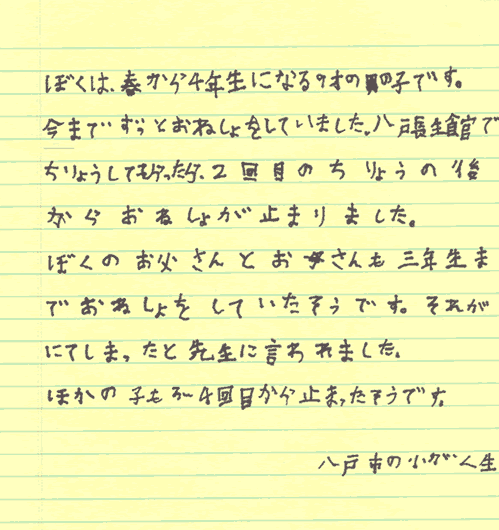 ぼくは、春から4年生になる9才の男の子です。
今までずっとおねしょをしていました。八戸長生館で
ちりょうしてもらったら、2回目のちりょうの後
からおねしょが止まりました。
ぼくのお父さんとお母さんも三年生ま
でおねしょをしていたそうです。それが
にてしまったと先生に言われました。
ほかの子も3〜4回目から止まったそうです。
八戸市の小がく生